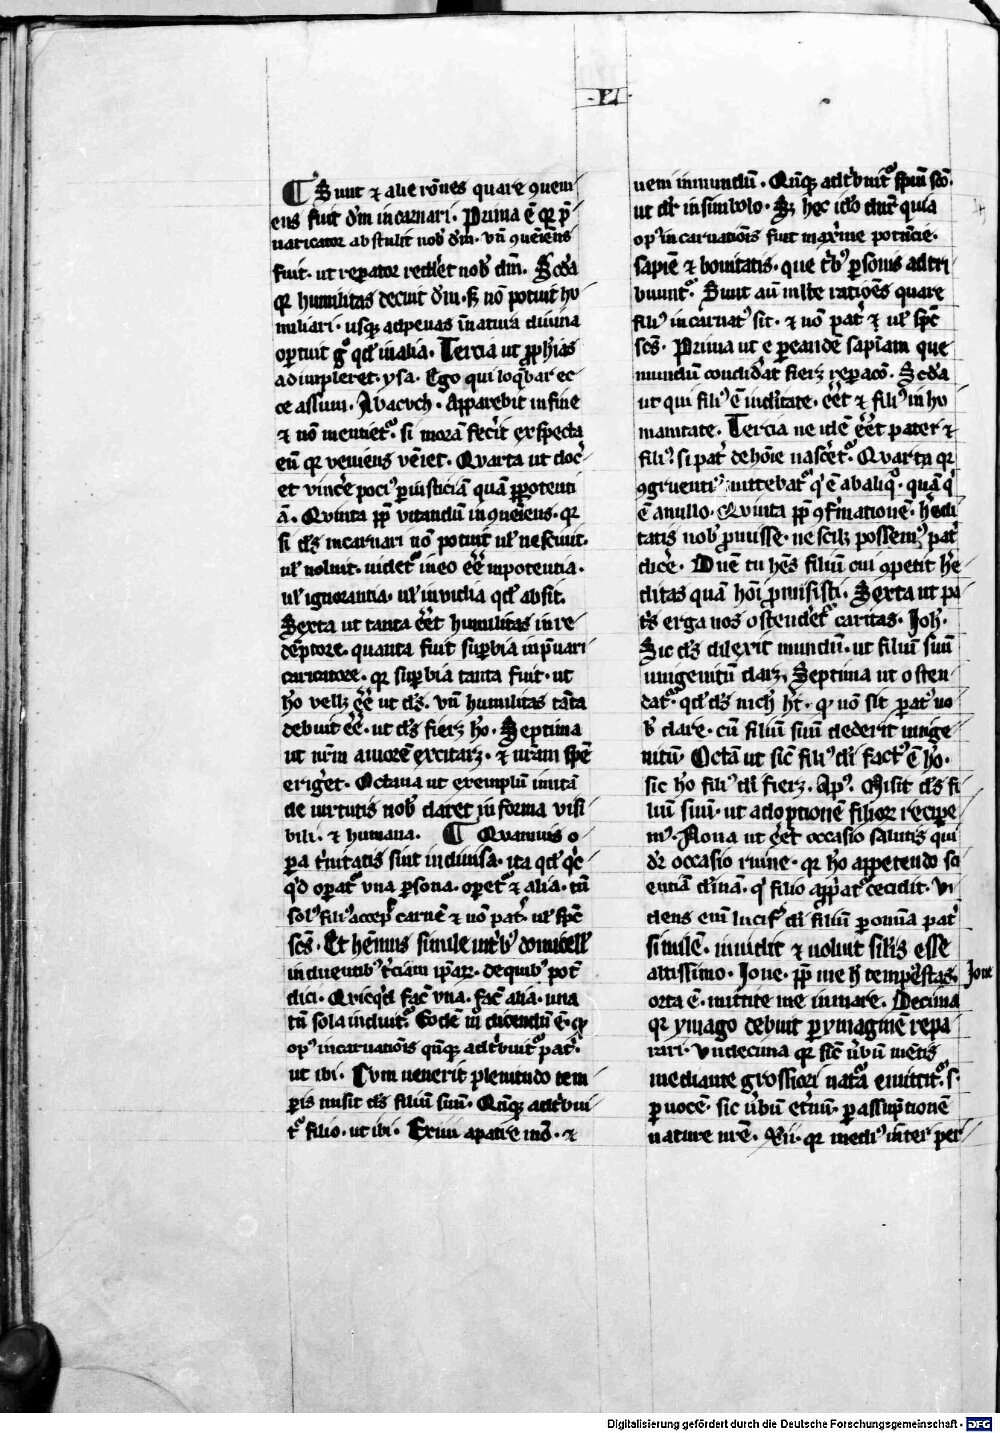 ·VI·
¶ Sunt ⁊ alie rōnes quare ꝯueni
ens fuit dm̄ incarnari· Prima ē qꝛ p̄
uaricator abstulit nob̄ dm̄· vn̄ ꝯueīens
fuit· ut reꝑator redd̓et nob̓ dm̄· Scd̓a
qꝛ humilitas decuit dm̄· sꝫ nō potuit hu
miliari· usqꝫ ad penas ī natura diuina
oportuit gͦ qd̓ in alia· Tercia ut ꝓph̓ias
adimpleret· ysa· Ego qui loq̄bar ec
ce assum· Abacuch· Apparebit in fine
⁊ nō mentiet᷑· si morā fec̓it exspecta
eū qꝛ veniens vēiet· Qvarta ut doc̓
et vinc̓e pociꝰ ꝑ iusticiā quā ꝓ potenti
ā· Qvinta ꝓp̄ vitandū inꝯueīens· qꝛ
si ds̓ incarnari nō potuit ul̓ nesciuit·
ul̓ noluit· uidet᷑ in eo ēe̓ inpotentia·
ul̓ ignorantia· ul̓ inuidia qd̓ absit·
Sexta ut tanta ēet̓ humilitas in re
dēptore· quanta fuit suꝑbia in p̄uari
catore· qꝛ suꝑbia tanta fuit· ut
ho̓ vellꝫ ēe̓ ut ds̓· vn̄ humilitas tāta
debuit ēe̓· ut ds̓ fierꝫ ho̓· Septima
ut nr̄m amorē excitarꝫ· ⁊ nr̄am spē
eriḡet· Octaua ut exemplū imitā
de uirtutis nob̓ daret in forma visi
bili· ⁊ humana· ¶ Qvamuis o
ꝑa t̓nitatis sint indiuisa· ita qd̓ qͥc
qͥd oꝑat᷑ vna ꝑsona· oꝑet᷑ ⁊ alia· tn̄
solꝰ filiꝰ accep̓ carnē ⁊ nō pat̓· ul̓ sp̄c
sc̄s· Et hēmus simile in t̓bꝰ domicell̓
induentibꝰ t̓ciam ip̄arꝝ· de quibꝰ pot̓
dici· Qvicqͥd fac̓ vna· fac̓ alia· una
tn̄ sola induit᷑· Eodē m̊ dicendū ē· qͥ
opꝰ incarnatiōis qn̄qꝫ adt̓buit᷑ pat̓·
ut ibi· Cvm uenerit plenitudo tem
ꝑis misit ds̓ filiū suū· Qn̄qꝫ adt̓bui
t᷑ filio· ut ibi· Exiui a patre mō· ⁊
ueni in mundū· Qn̄qꝫ adt̓buit᷑ spūi sc̄o·
ut dr̓ in simbolo· Sꝫ hoc id̓o dicit᷑ quia
opꝰ incarnatiōis fuit maxime potēcie·
sapiē ⁊ bonitatis· que t̓bꝰ ꝑsonis adtri
buunt᷑· Sunt aū ml̓te ratiōes quare
filiꝰ incarnatꝰ sit· ⁊ nō pat̓ ⁊ ul̓ sp̄c
sc̄s· Prima ut ꝑ eandē sapīam que
mundū condid̓at fierꝫ reꝑacō· Scd̓a
ut qui filiꝰ ē in diītate· ēet̓ ⁊ filiꝰ in hu
manitate· Tercia ne idē ēet̓ pater ⁊
filiꝰ si pat̓ de hōie nascet᷑· Qvarta qꝛ
ꝯgruentiꝰ mittebat᷑ qͥ ē ab aliqͦ· quā qͥ
ē a nullo· Qvinta ꝓp̄ ꝯfirmationē· hēdi
tatis nob̓ ꝓmisse· ne scilꝫ possemꝰ pat̓
dic̓e· Dn̄e tu hēs filiū cui ꝯpetit he̓
ditas quā hōi ꝓmisisti· Sexta ut pa
t̓s erga nos ostendet᷑ caritas· Joh̓·
Sic ds̓ dilexit mundū· ut filiū suū
unigenitū darꝫ· Septima ut osten
dat᷑· qd̓ ds̓ nich̓ ht̓· qͥ nō sit paratꝰ no
b̓ dare· cū filiū suū dederit unige
nitū· Octā ut sic̓ filiꝰ di̓ factꝰ ē ho̓·
sic ho̓ filiꝰ di̓ fierꝫ· Apꝰ· Misit ds̓ fi
liū suū· ut adoptionē filioꝝ recipe
mꝰ· Nona ut ēet̓ occasio salutis qui
d̓r occasio ruine· qꝛ ho̓ appetendo sci
entiā diuinā· qͥ filio app̓at᷑ cecidit· Vi
dens em̄ lucif̓ di̓ filiū ꝑ omīa pat̓
similē· inuidit ⁊ uoluit silīs esse
altissimo· Jone· ꝓp̄ me h̓ tempestas Jone
orta ē· mittite me in mare· Decima
qꝛ ymago debuit ꝑ ymaginē repa
rari· Vndecima qꝛ sic̓ ūbū mētis
mediante grossiori nat᷑a emittit᷑· s·
ꝑ uocē· sic ūbū et̓nū· ꝑ assūptionē
nature nr̄e· Xii· qꝛ mediꝰ inter per
Digitalisierung gefördert durch die Deutsche Forschungsgemeinschaft - DFG